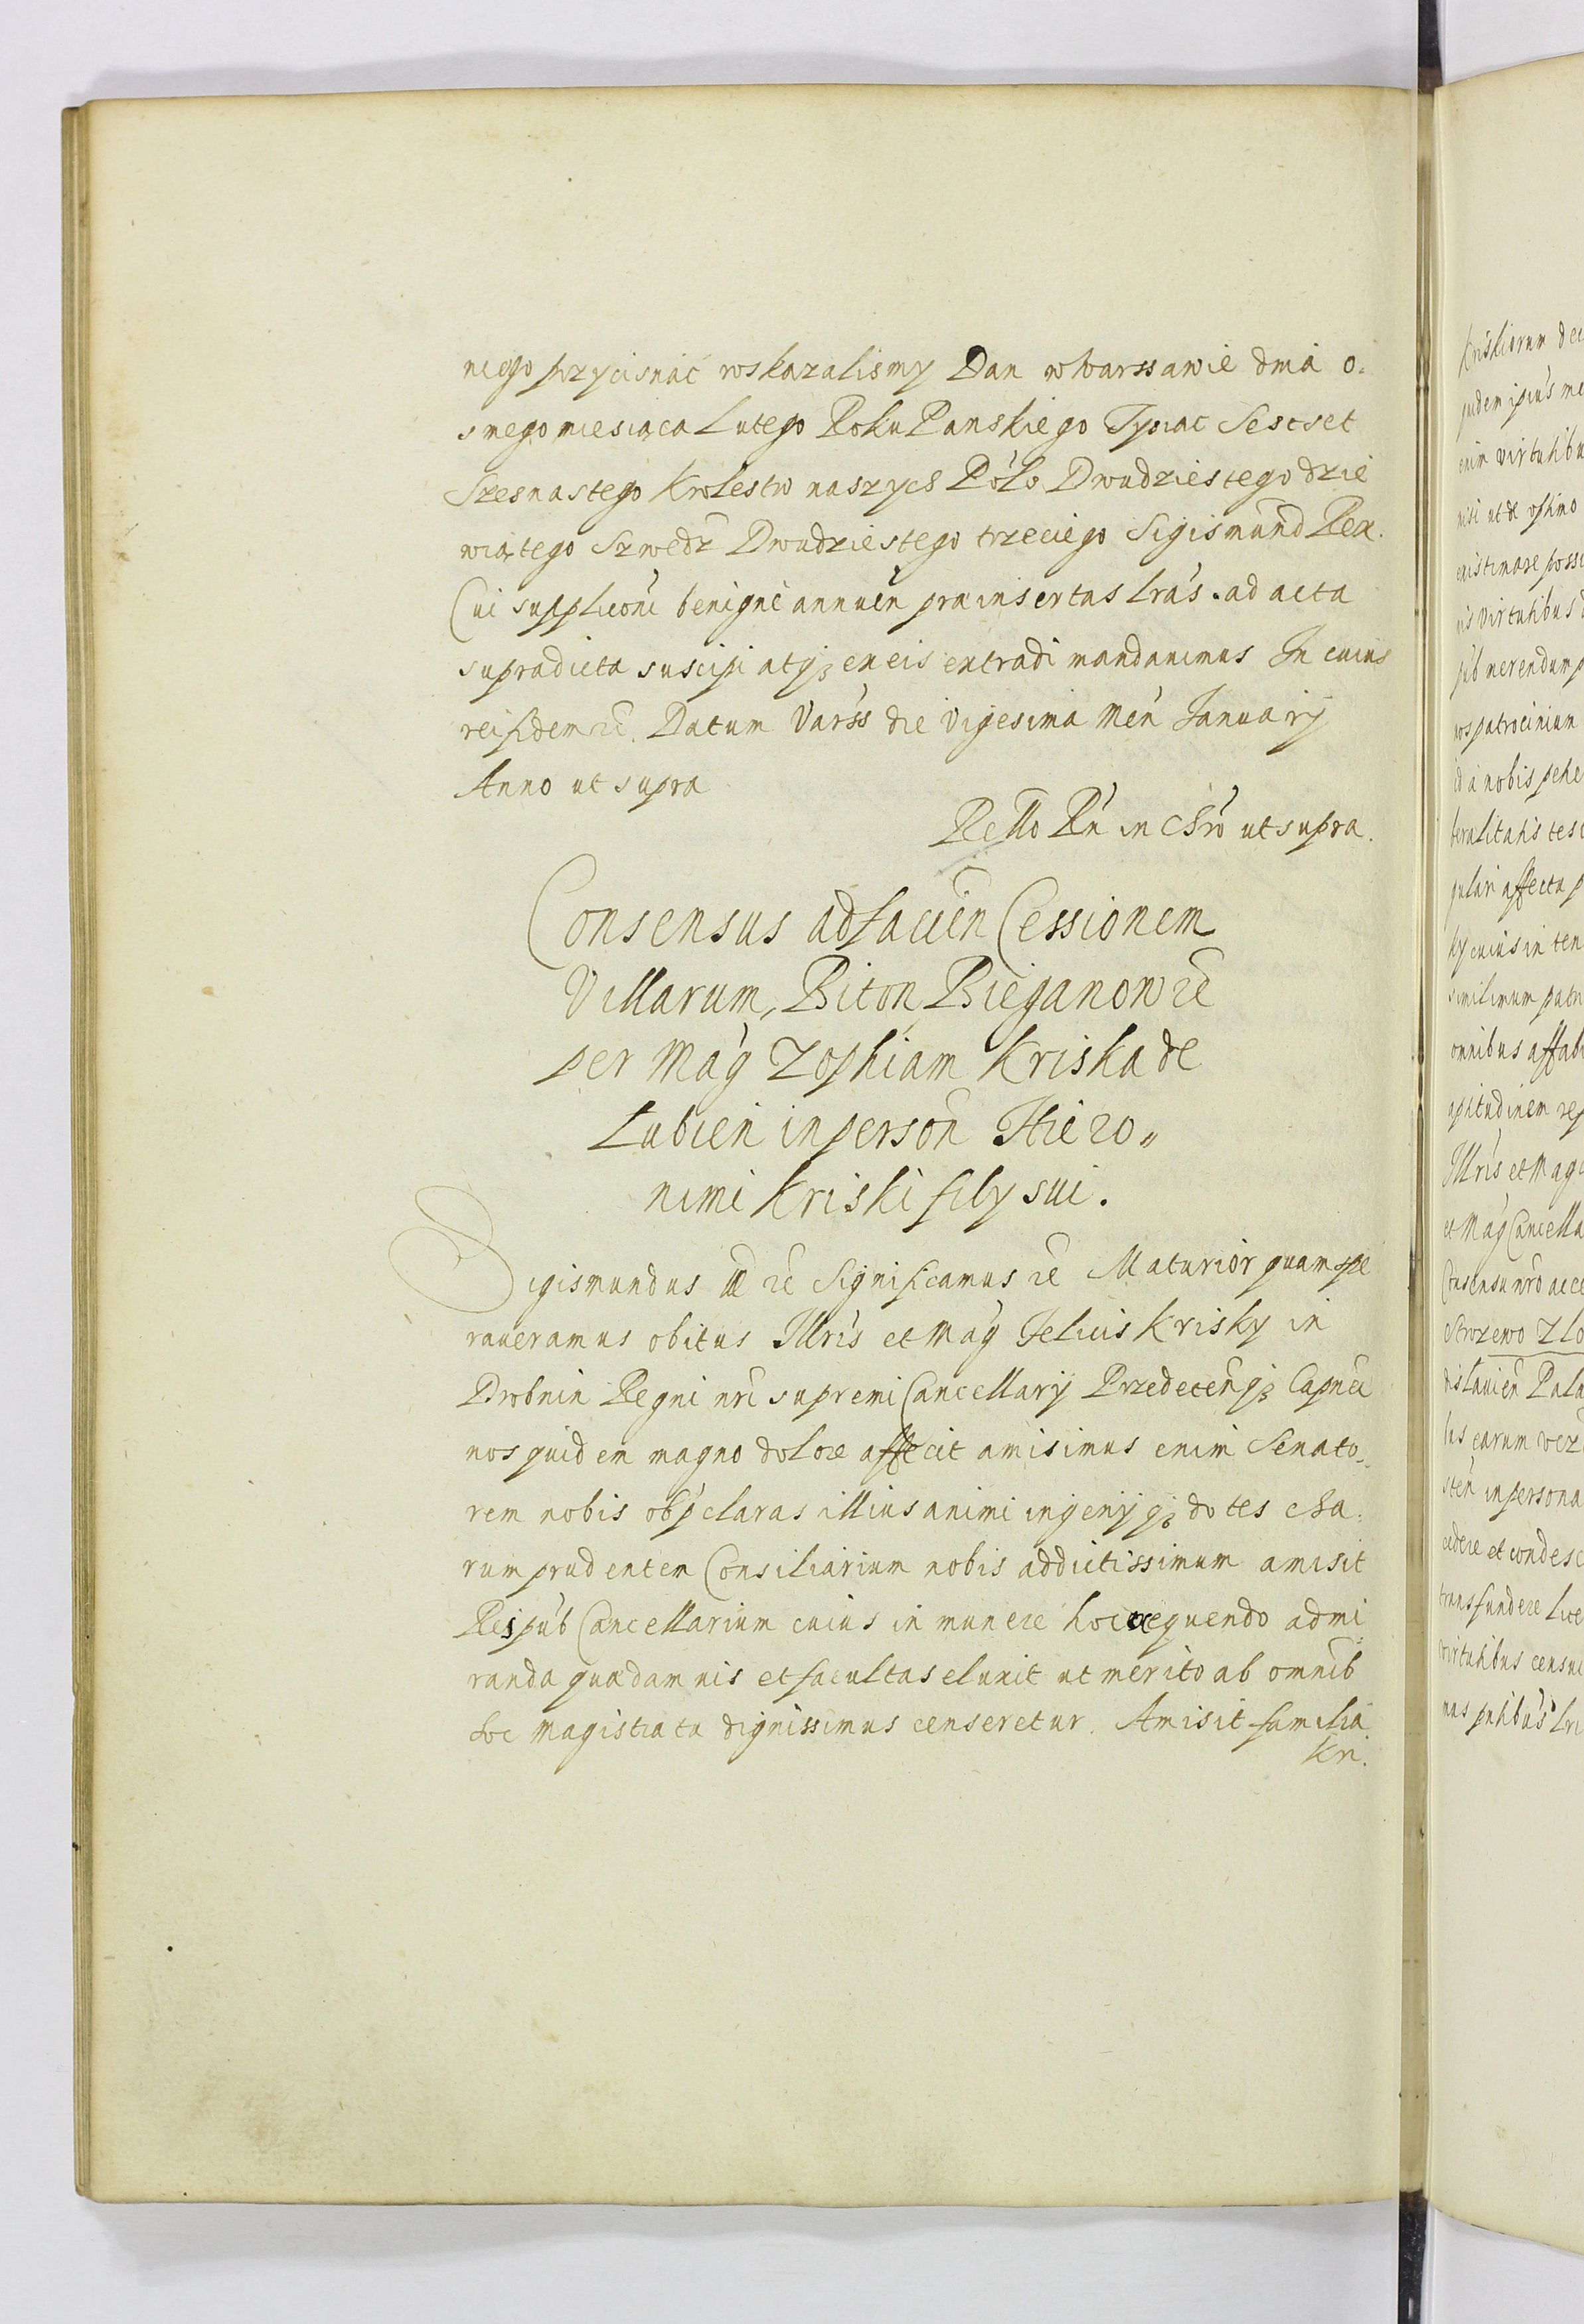 niego przycisnać wskazalismy Dan wWarssawie dnia o.
smego miesiąca Lutego Roku Panskiego Tysiac Sescset
Szesnastego Krolestw naszych Pol. Dwudziestego dzie
wiątego Szwedz Dwudziestego trzeciego Sigismund Rex.
Cui suppliconi benigne annuen præinsertas lras. ad acta
supradicta suscipi atq; ex eis extradi mandavimus In cuius
rei fidem etc. Datum Varss die Vigesima Men Ianuarij
Anno ut supra
Rello Rn in Chro ut supra.
Consensus ad facien Cessionem
Villarum, Biton Bieganow etc
per Mag Zophiam Kriska de
Lubien in person Hiero„
nimi Kriski filij sui.
Sigismundus etc etc Significamus etc Maturior quam spe
raveramus obitus Illris et Mag Felicis Krisky in
Drobnin Regni nri supremi Cancellarij Przedecen q; Capnei
nos quidem magno dolore affecit amisimus enim Senato„
rem nobis ob pclaras illius animi ingenij q; dotes cha„
rum prudentem Consiliarium nobis addictissimum amisit
Respub Cancellarium cuius in munere hoc exequendo admi
randa quadam vis et facultas eluxit ut merito ab omnib
hoc Magistratu dignissimus censeretur. Amisit familia
Kri.
Kriskiorum dec
pudem ipius me
enim virtutibu
nisi ut de optimo
existimare possi
is virtutibus
pub merendum p
nos patrocinium
id à nobis pete
beralitatis test
gulari affectu p
ky cuius in ten
simillimum patri
omnibus affabi
aptitudinem rep
Illris et Mag
et Mag Cancella
Consensu nro acce
Strozewo Zlo
dislavien Pala
las earum vez
sten in persona
cedere et condesc
transfundere lice
virtutibus censui
nas pntibus lri